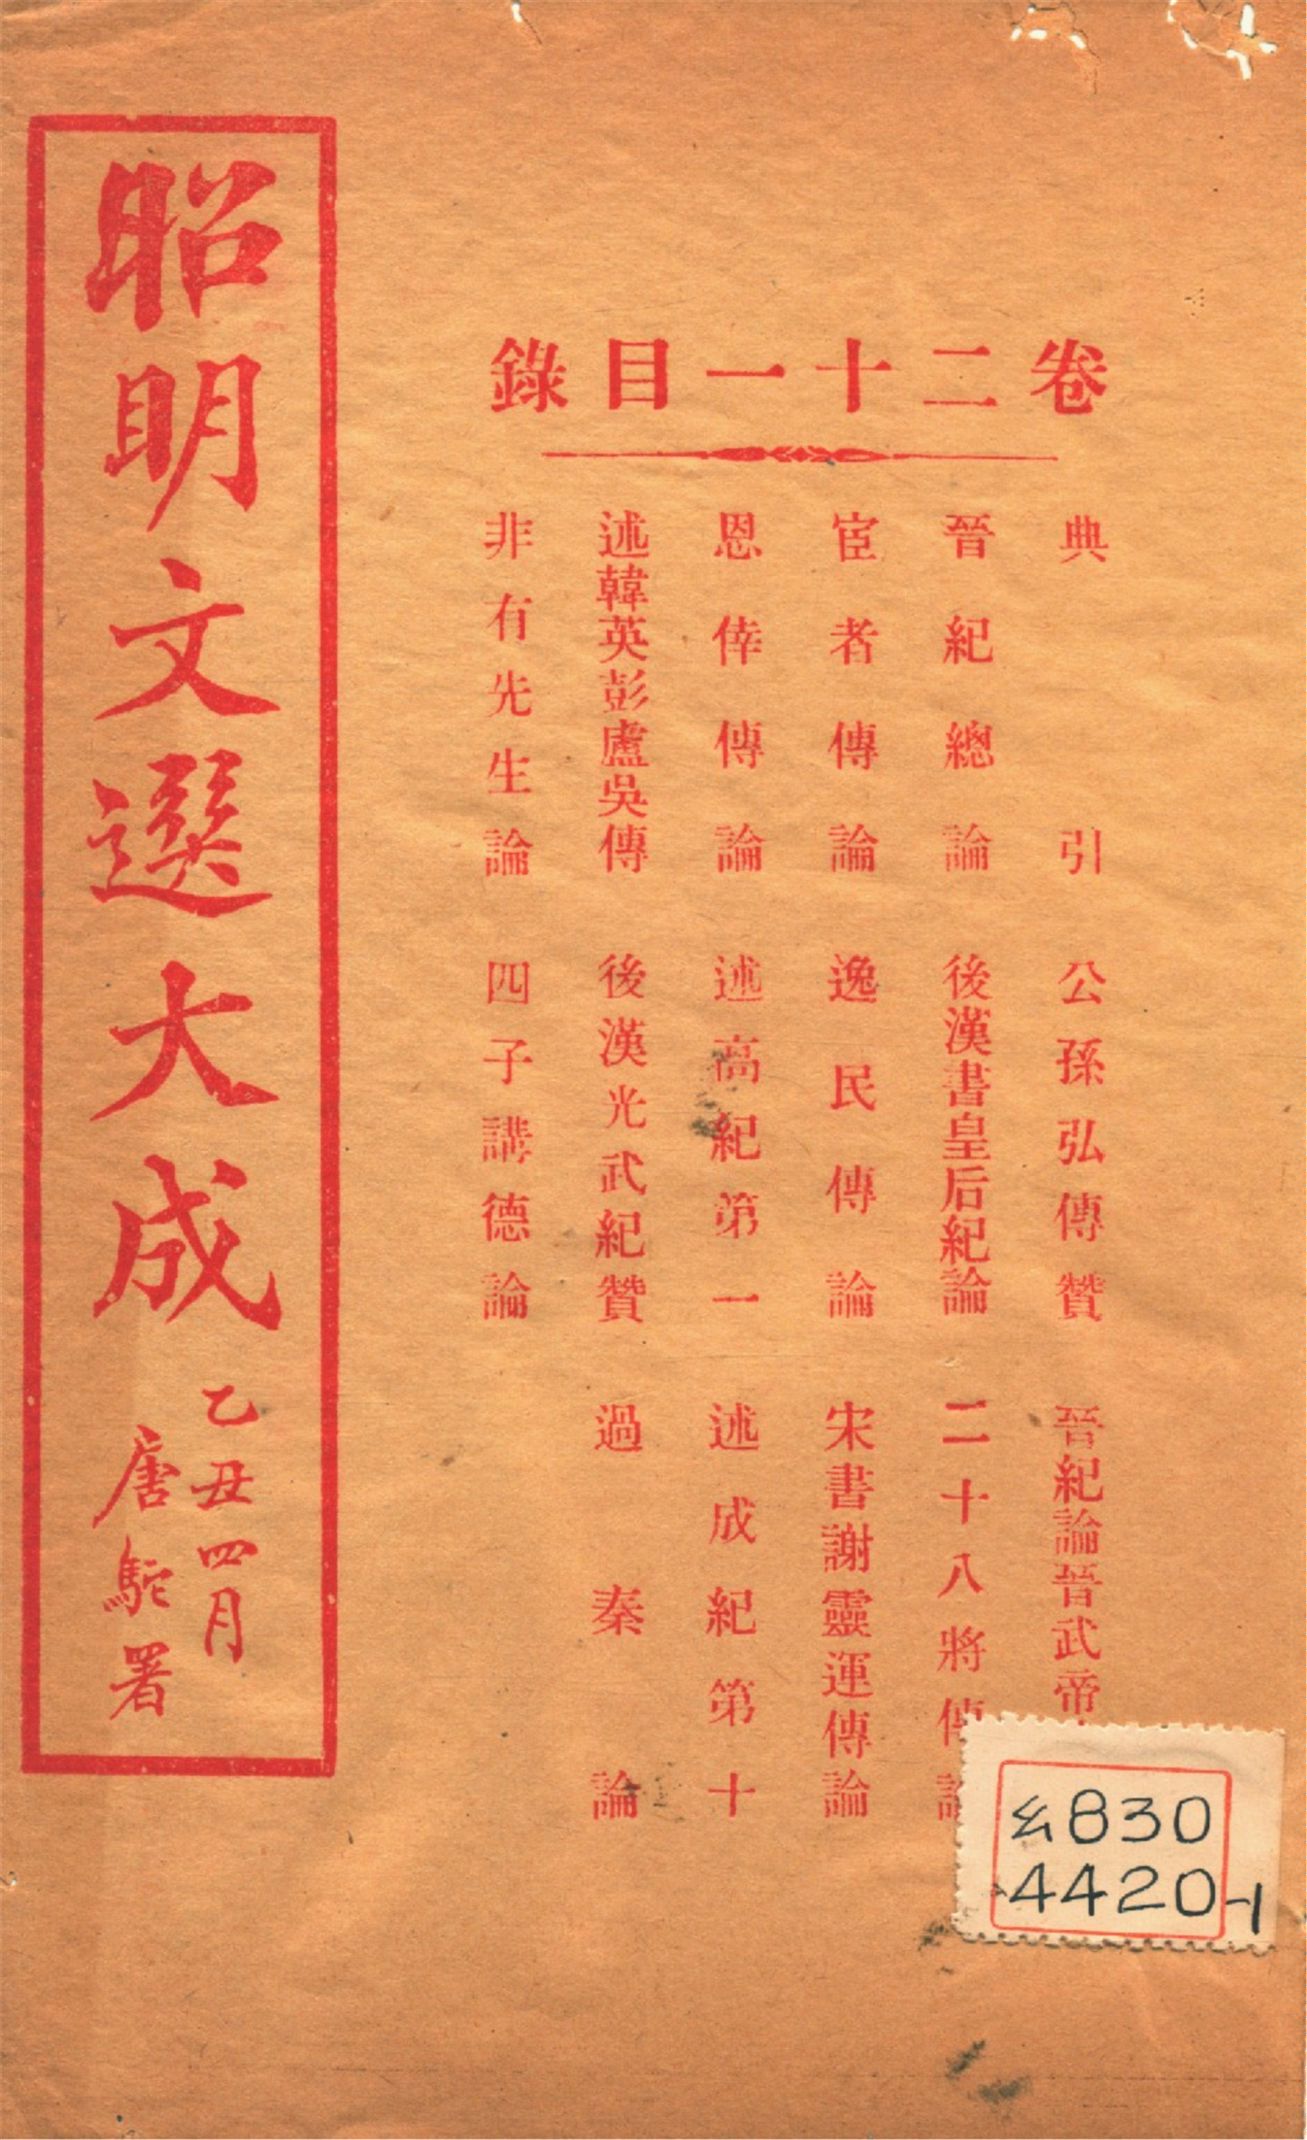 卷二十一目錄
典引　公孫弘傳贊　晉紀論晉武帝
晉紀總論　後漢書皇后紀論　二十八將傳論
宦者傳論　逸民傳論　宋書謝靈運傳論
恩倖傳論　述高紀第一　述成紀第十
述韓英彭盧吳傳　後漢光武紀贊　過秦論
非有先生論　四子講德論
昭明文選大成
乙丑四月
唐駝署
830
4420-1